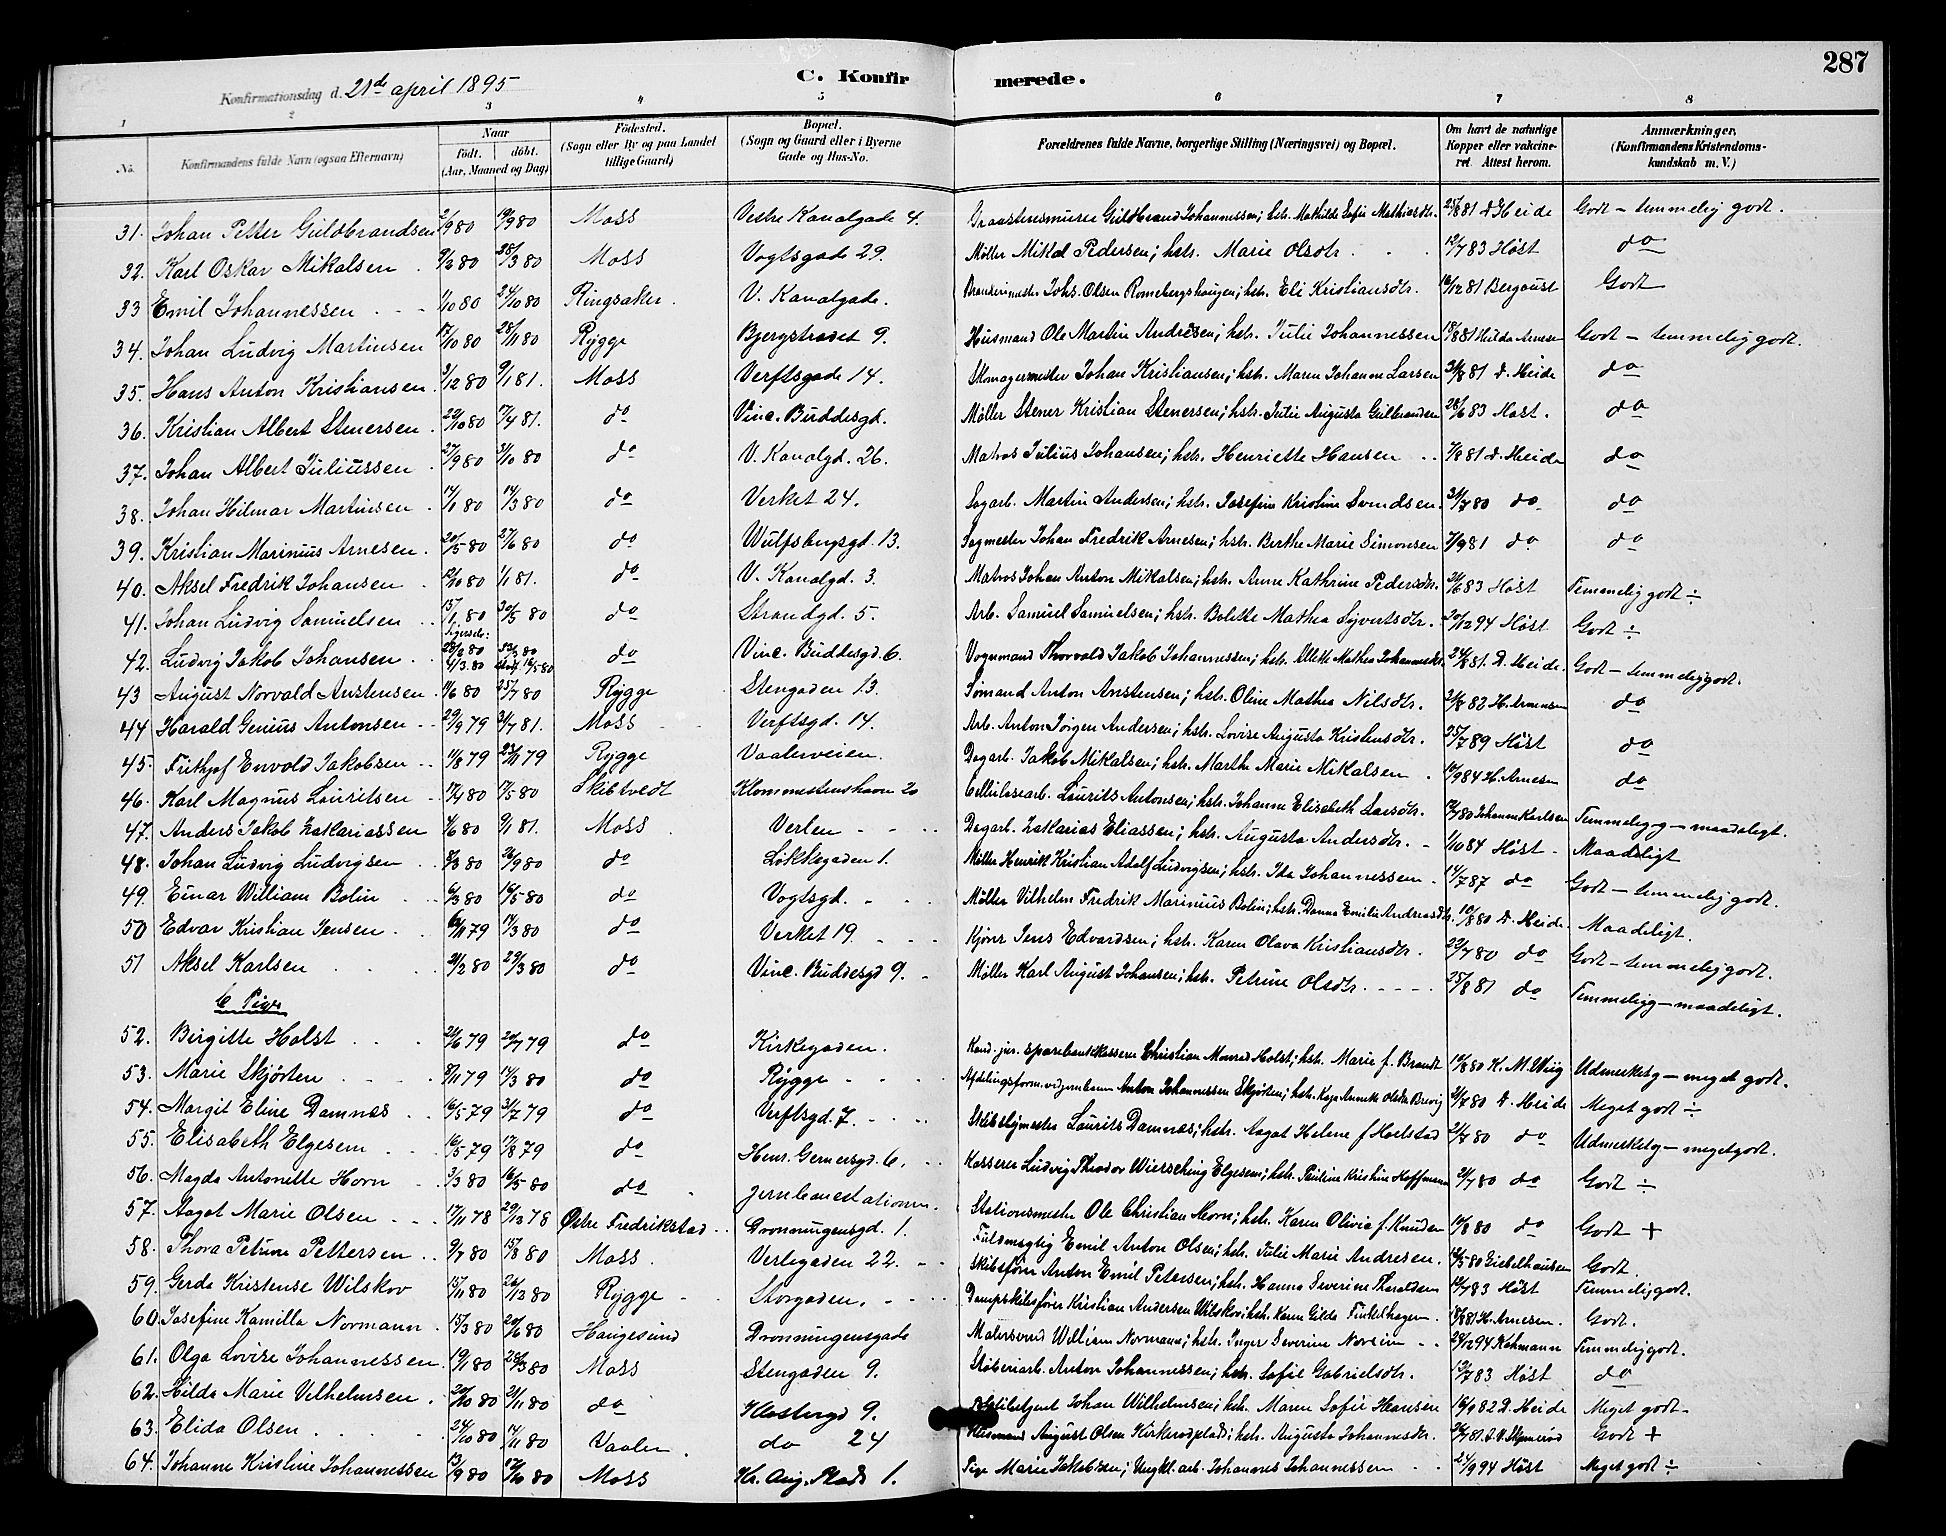 287
Konfirmationsdag d. 21de april 1895
C. Konfirmerede.
1 2 3 4 5 6 7 8
No. Konfirmandens fulde Navn (ogsaa Efternavn) Naar født. døbt. (Aar, Maaned og Dag) Fødested. (Sogn eller By og paa Landet tillige Gaard) Bopæl. (Sogn og Gaard eller i Byerne Gade og Hus-No. Forældrenes fulde Navne, borgerlige Stilling (Næringsvei) og Bopæl. Om havt de naturlige Kopper eller vakcineret. Attest herom. Anmærkninger. (Konfirmandens Kristendomskundskab m. V.)
31. Johan Petter Guldbrandsen 2/9 80 19/9 80 Moss Vestre Kanalgade 4. Graastensmurer Guldbrand Johannessen; hstr. Mathilde Sofie Mathiasdtr. 25/8 81 D. Heide Godt - temmelig godt.
32. Karl Oskar Mikalsen 9/2 80 28/3 80 Moss Vogtsgade 29. Møller Mikal Pedersen; hstr. Marie Olsdtr. 12/7 83 Høst do
33 Emil Johannessen 1/10 80 24/10 80 Ringsaker. V. Kanalgade. Johs. Olsen Ronebergshaugen; hstr. Eli Kristiansdtr. 16/12 81 Bergaust Godt
34. Johan Ludvig Martinsen 17/10 80 28/11 80 Rygge Bjergstrædet 9. Husmand Ole Martin Andresen; hstr. Julie Johannessen 18/8 81 Hilda Arnesen Godt - temmelig godt.
35. Hans Anton Kristiansen 3/12 80 9/1 81. Moss Verftsgade 14. Skomagermester Johan Kristiansen; hstr. Maren Johanne Larsen 31/8 81 D. Heide do
36. Kristian Albert Stenersen 29/10 80 17/4 81. do Vinc. Buddesgd. Møller Stener Kristian Stenersen; hstr. Julie Augusta Gulbrandsen 28/6 83 Høst. do
37. Johan Albert Juliussen 27/9 80 31/10 80 do V. Kanalgd. 26. Matros Julius Johansen; hstr. Henriette Hansen 7/8 81 D. Heide do
38. Johan Hilmar Martinsen 14/1 80 14/3 80 do Verket 24. Sagarb. Martin Andersen; hstr. Josefine Kristine Svendsen 24/7 80 do do
39. Kristian Marinius Arnesen 20/5 80 27/6 80 do Wulfsbergsgd. 13. Sagmester Johan Fredrik Arnesen; hstr. Berthe Marie Simonsen 7/9 81 do do
40. Aksel Fredrik Johansen 12/10 80 1/1 81. do V. Kanalgd. 3. Matros Johan Anton Mikalsen; hstr. Anne Kathrine Pedersdtr. 21/6 83 Høst Temmelig godt ÷
41. Johan Ludvig Samuelsen 15/1 80 30/5 80 do Strandgd. 5. Arb. Samuel Samuelsen; hstr. Bolette Mathea Syvertsdtr. 20/12 94 Høst Godt ÷
42. Ludvig Jakob Johansen 28/2 80 4/3 80 16/5 80 do Vinc. Buddesgd. 6. Vognmand Thorvald Jakob Johannessen; hstr. Mathea Johannesdtr. 24/8 81. D. Heide. Godt - temmelig godt.
43 August Norvald Anstensen 11/6 80 25/7 80 Rygge Stengaden 13. Sømand Anton Anstensen; hstr. Oline Mathea Nilsdtr. 31/8 82 H. Arnesen do
44 Harald Genius Antonsen 29/9 79 31/7 81. Moss Verftsgd. 14. Arb. Anton Jørgen Andersen; hstr. Lovise Augusta Kristensdtr. 25/7 89 Høst do
45. Frithjof Envold Jakobsen 11/8 79 23/11 79 Rygge Vaalerveien. Dagarb. Jakob Mikalsen; hstr. Marthe Marie Mikalsen 10/9 84 H. Arnesen do
46. Karl Magnus Lauritsen 17/4 80 17/5 80 Skibtvedt Klommestenshaven 20 Cellulosearb. Laurits Antonsen; hstr. Johanne Elisabeth Larsdtr. 12/7 80 Johanne Karlsen Temmelig g - maadeligt.
47. Anders Jakob Zakariassen 4/6 80 9/1 81. Moss Verlen Dagarb. Zakarias Eliassen; hstr. Augusta Andersdtr. 1/10 84 Høst Maadeligt
48. Johan Ludvig Ludvigsen 8/3 80 26/9 80 do Løkkegaden 1. Møller Henrik Kristian Adolf Ludvigsen; hstr. Ida Johannessen 14/7 87 do Godt - temmelig godt.
49. Einar William Bolin 6/3 80 16/5 80 do Vogtsgd. Møller Vilhelm Fredrik Marinius Bolin; hstr. Danna Emilie Andreasdtr. 10/8 80 D. Heide Maadeligt.
50 Edvar Kristian Jensen 6/11 79 14/3 80 do Verket 19. Kjører Jens Edvardsen; hstr. Karen Olava Kristiansdtr. 22/7 80 do Godt - temmelig godt.
51 Aksel Karlsen 21/2 80 29/3 80 do Vinc. Buddesgd 9. Møller Karl August Johansen; hstr. Petrine Olsdtr. 25/8 81 do Temmelig g - maadeligt.
b Piger
52. Birgitte Holst 24/6 79 20/7 79 do Kirkegaden. Kand. jur. sparebankkasserer Christian Monrad Holst; hstr. Marie f. Brandt 14/8 80 K. M. Wiig Udmerket g - meget godt.
53. Marie Skjørten 8/11 79 14/3 80 do Rygge Afdelingsform. ved jernbanen Anton Johannessen Skjørten; hstr. Kaja Annette Olsdtr Brevig 21/7 80 D. Heide Meget godt ÷
54. Margit Eline Damnæs 16/5 79 31/7 79 do Verftsgd. 7. Skibstøjmester Laurits Damnæs; hstr. Aagot Helene f Hoelstad 21/7 80 do Udmerket g - meget godt.
55. Elisabeth Elgesem 16/5 79 17/8 79 do Henr. Gernersgd. 6. Kasserer Ludvig Theodor Wiersching Elgesem; hstr. Pauline Kristine Hoffmann 21/7 80 do Godt ÷
56. Magda Antonette Horn 3/3 80 16/5 80 do Jernbanestationen. Stationsmester Ole Christian Horn; hstr. Karen Olivia f. Knudsen 14/8 80 do Godt +
57. Aagot Marie Olsen 17/11 78 29/12 78 Østre Fredrikstad Dronningensgd. 1. Fuldmægtig Emil Anton Olsen; hstr. Julie Marie Andresen. 14/5 80 Giebelhausen Godt.
58. Thora Petrine Pettersen 9/7 80 15/8 80 Moss. Verlegaden 22. Skibsfører Anton Emil Petersen; hstr. Hanna Severine Tharaldsen 12/7 83 Høst Temmelig godt.
59. Gerda Kristense Wilskov 15/11 80 26/12 80 Rygge Storgaden. Dampskibsfører Kristian Andersen Wilskov; hstr. Karen Gilda Finkelhagen 18/8 81 H. Arnesen. Godt.
60. Josefine Kamilla Normann 15/3 80 20/6 80 Haugesund Dronningensgade Malersvend William Normann; hstr. Inger Severine Norsein 24/12 94 Køhmann Temmelig godt.
61. Olga Lovise Johannessen 19/1 80 28/3 80 Moss Stengaden 9. Støberiarb. Anton Johannessen; hstr. Sofie Gabrielsdtr. 12/7 83 Høst do
62. Hilda Marie Vilhelmsen 20/10 80 21/11 80 do Klostergd 9. Johan Wilhelmsen; hstr. Maren Sofie Hansen 16/9 82 D. Heide Meget godt
63. Elida Olsen 24/10 80 14/11 80 Vaaler. do 24 Husmand August Olsen Kirkerødplads; hstr. Augusta Johannesdtr. 26/7 81. Godt +
64. Johanne Kristine Johannessen 13/9 80 17/10 80 Moss Kr. Aug. Plads 1. Pige Marie Jakobsen; Ungkl. arb. Johannes Johannessen 24/9 94 Høst Meget godt ÷